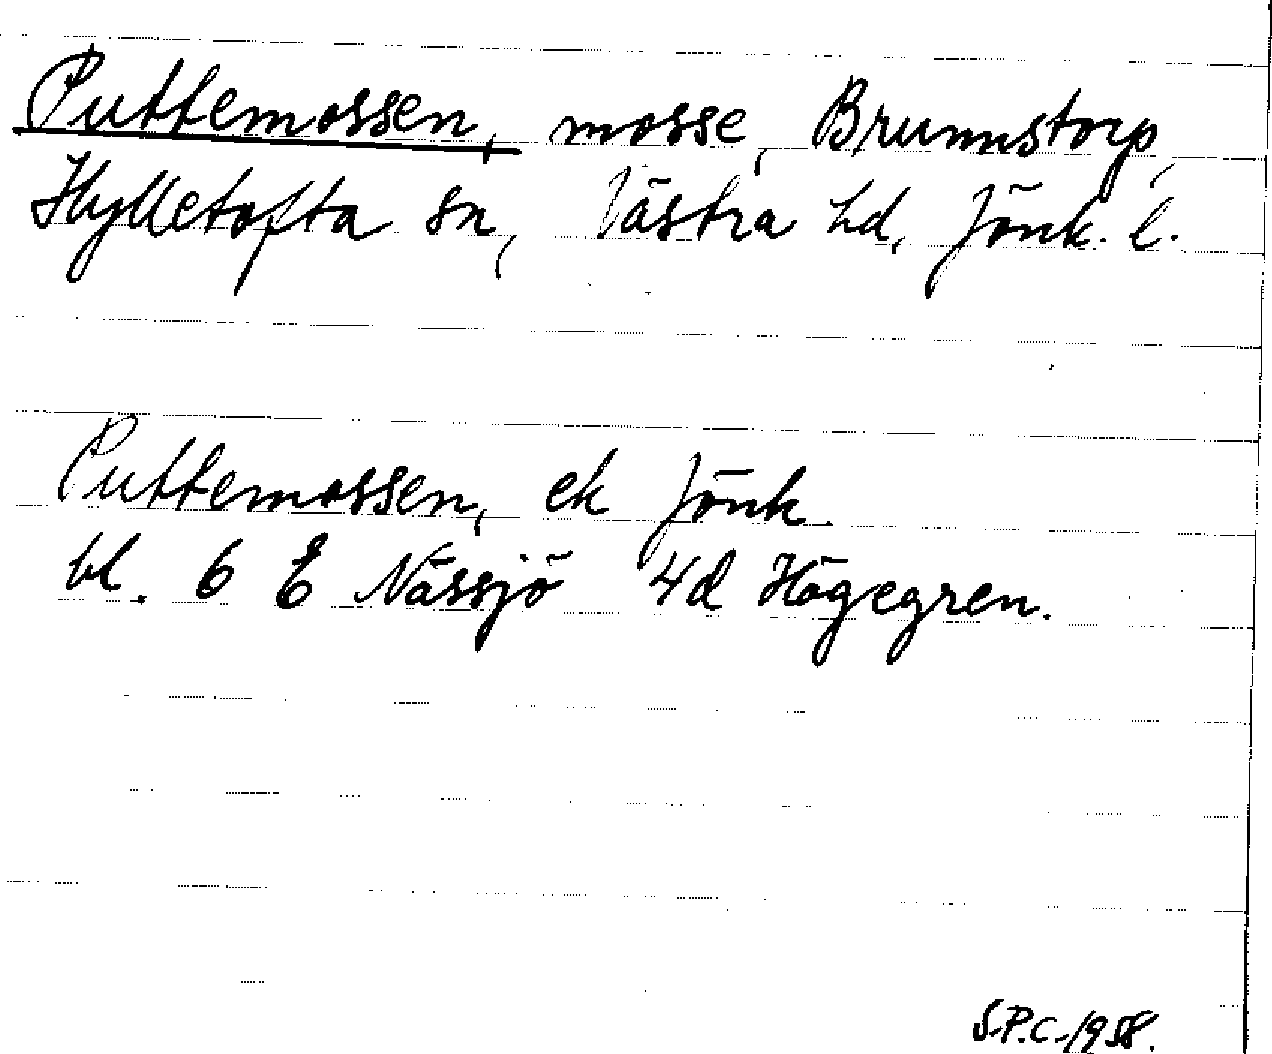 Puttemossen, mosse, Brunnstorp,
Hylletofta sn, Västra hd, Jönk. l.
Puttemossen, ek Jönk.
bl. 6 E Nässjö 4d Högegren.
S.P.C. 1958.